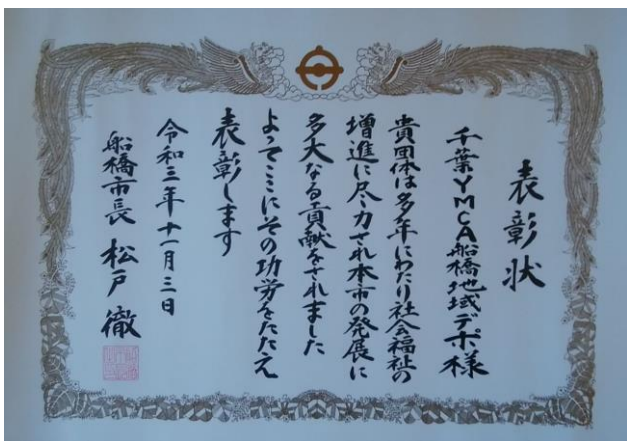 表彰状
千葉YMCA船橋地域デポ様
貴団体は多年にわたり社会福祉の
増進に尽力され本市の発展に
多大なる貢献をされました
よってここにその功労をたたえ
表彰します
令和三年十一月三日
船橋市長 松戸 徹